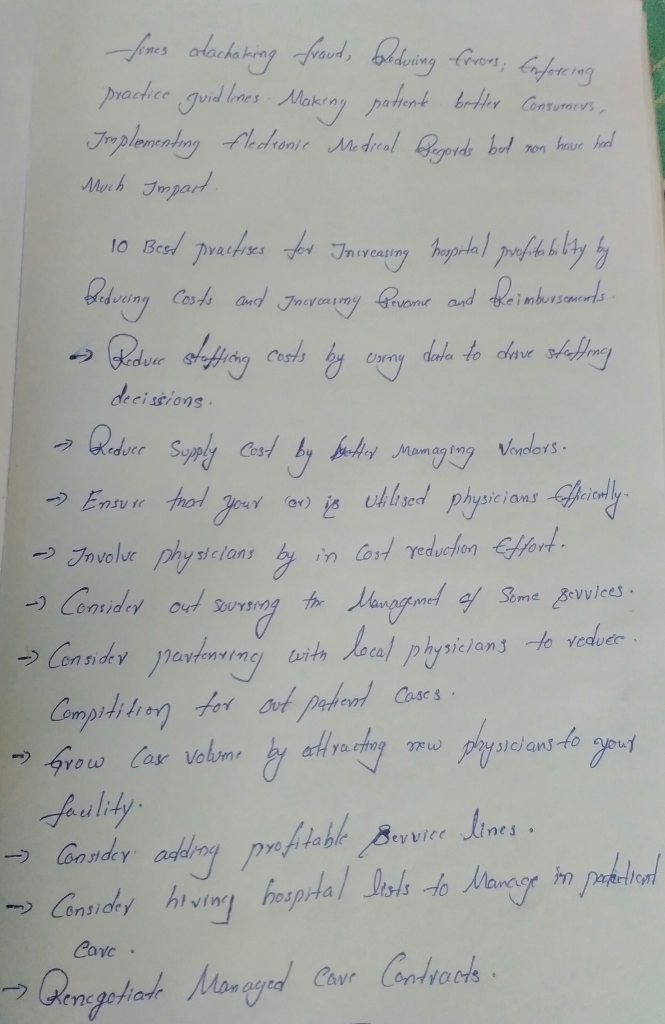 fines atachaking fraud, Reduing Errors, Enforcing
practice guidlines. Making patient better Consumers,
Implementing Electronic Medical Regords but non have had
Much Impact.
10 Best practises for Increasing hospital profitability by
Reducing Costs and Increasing Revanue and Reimbursements.
→ Reduce staffing costs by using data to drive staffing
decissions.
→ Reduce Supply Cost by better Mamaging Vendors.
→ Ensure that your (or) is utilised physicians Efficiently.
→ Involve physicians by in Cost reduction Effort.
→ Consider out soursing the Managemet of Some services.
→ Consider partenring with local physicians to reduce.
Compitition for out patient Cases.
→ Grow Case Volume by attracting new physicians to your
facility.
→ Consider adding profitable Service lines.
→ Consider hiring hospital lists to Manage in patient
Care.
→ Renegotiate Managed Care Contracts.